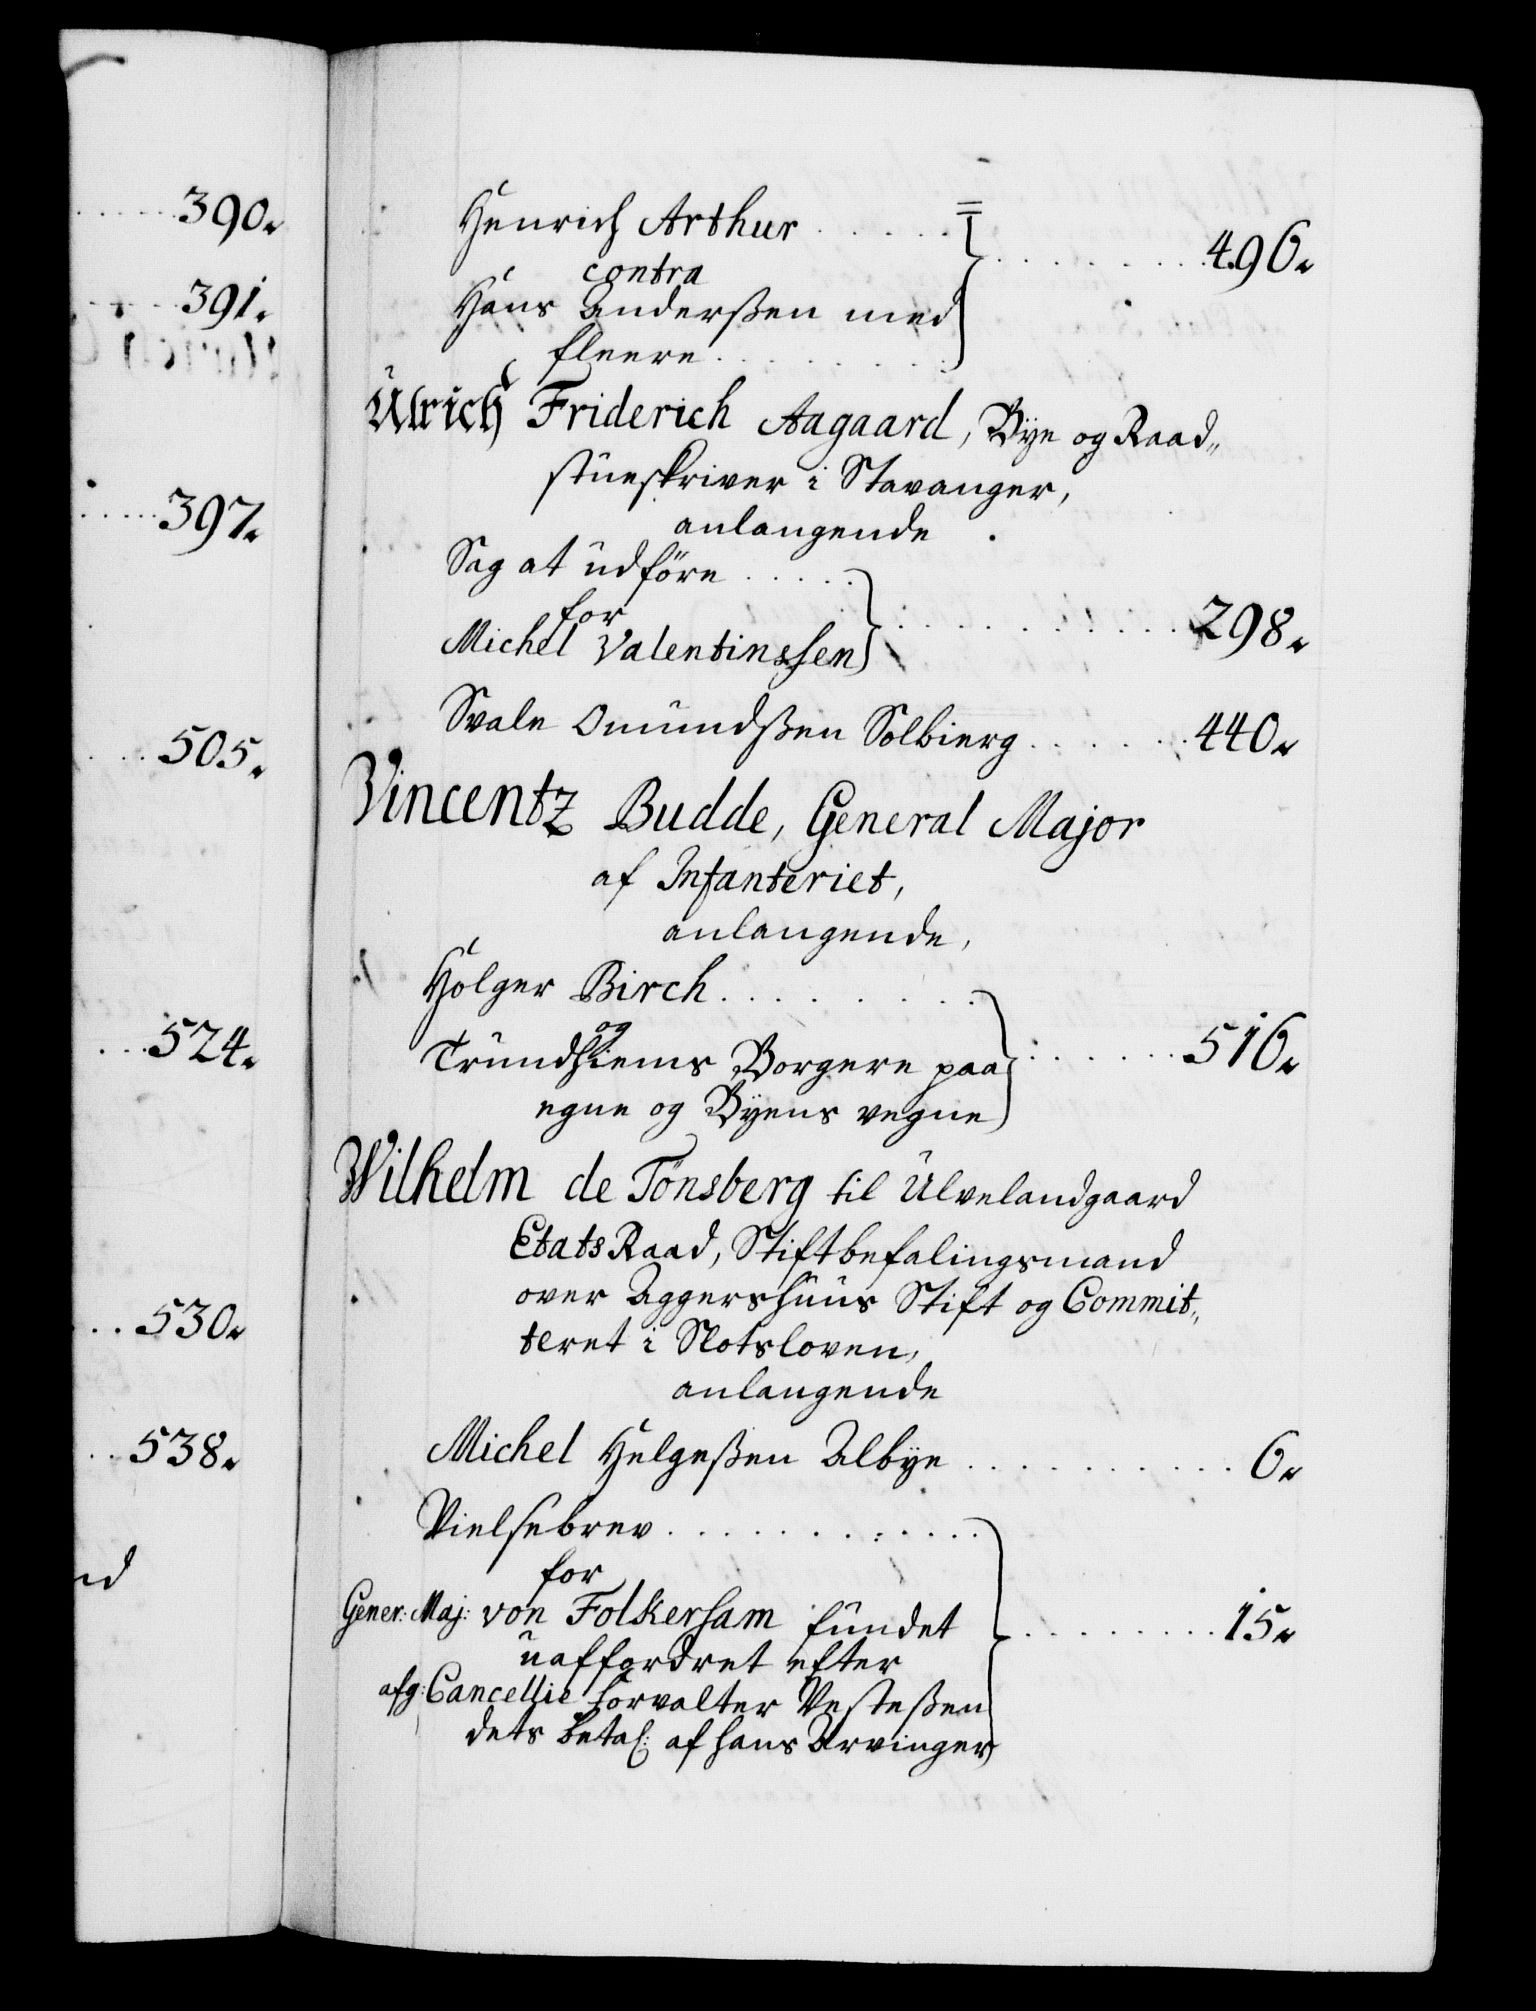 390.
391.
397.
505.
524.
530.
538.
nd
Henrich Arthur . . . . .
contra
Hans Anderßen med
fleere . . . . . . . 496.
Ulrich Friderich Aagaard, Bye og Raad„
stueskriver i Stavanger,
anlangende .
Sag at udföre . . . . .
for
Michel Valentinssen . . . . . . . . 298.
Svale Omundßen Solbierg . . . . . . 440.
Vincentz Budde, General Major
af Infanteriet,
anlangende,
Holger Birch . . . . . . . .
og
Trundhiems Borgere paa . . . . . . 516.
egne og Byens vegne
Wilhelm de Tönsberg til Ulvelandgaard
Etats Raad, Stiftbefalingsmand
over Aggershuus Stift og Commit„
teret i Slotsloven,
anlangende
Michel Helgeßen Albye . . . . . . . . . . 6.
Vielsebrev . . . . . . . . . . .
for
Gener: Maj: von Folkersam fundet . . . . . . . . 15.
uaffordret efter
afg: Cancellie forvalter Vesteßen
dets betal: af hans Arvinger